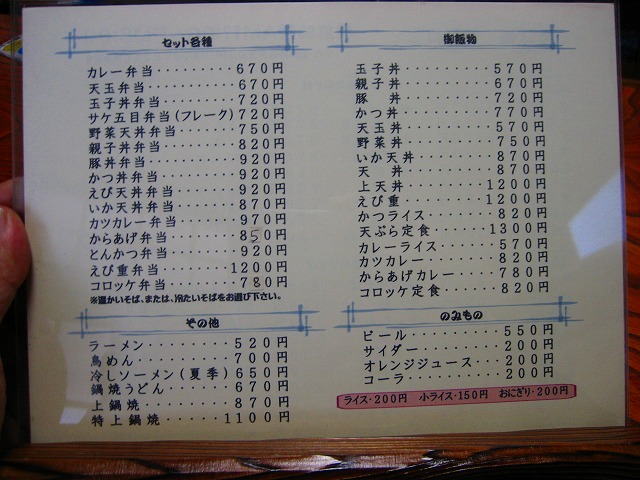 セット各種
カレー弁当・・・・・・・・・670円
天玉弁当・・・・・・・・・・670円
玉子丼弁当・・・・・・・・・720円
サケ五目弁当(フレーク)720円
野菜天丼弁当・・・・・・・750円
親子丼弁当・・・・・・・・・820円
豚丼弁当・・・・・・・・・・920円
かつ丼弁当・・・・・・・・・920円
えび天丼弁当・・・・・・・920円
いか天丼弁当・・・・・・・870円
カツカレー弁当・・・・・・970円
からあげ弁当・・・・・・・850円
とんかつ弁当・・・・・・・920円
えび重弁当・・・・・・・・1200円
コロッケ弁当・・・・・・・780円
※温かいそば、または、冷たいそばをお選び下さい。
その他
ラーメン・・・・・・・・・・520円
鳥めん・・・・・・・・・・・700円
冷しソーメン(夏季)650円
鍋焼うどん・・・・・・・・・670円
上鍋焼・・・・・・・・・・・870円
特上鍋焼・・・・・・・・・1100円
御飯物
玉子丼・・・・・・・・・・・570円
親子丼・・・・・・・・・・・670円
豚　丼・・・・・・・・・・・720円
かつ丼・・・・・・・・・・・770円
天玉丼・・・・・・・・・・・570円
野菜丼・・・・・・・・・・・750円
いか天丼・・・・・・・・・・870円
天　丼・・・・・・・・・・・870円
上天丼・・・・・・・・・・1200円
えび重・・・・・・・・・・1200円
かつライス・・・・・・・・・820円
天ぷら定食・・・・・・・・1300円
カレーライス・・・・・・・570円
カツカレー・・・・・・・・・820円
からあげカレー・・・・・・780円
コロッケ定食・・・・・・・820円
のみもの
ビール・・・・・・・・・・・550円
サイダー・・・・・・・・・・200円
オレンジジュース・・・200円
コーラ・・・・・・・・・・・200円
ライス・200円　小ライス・150円　おにぎり・200円